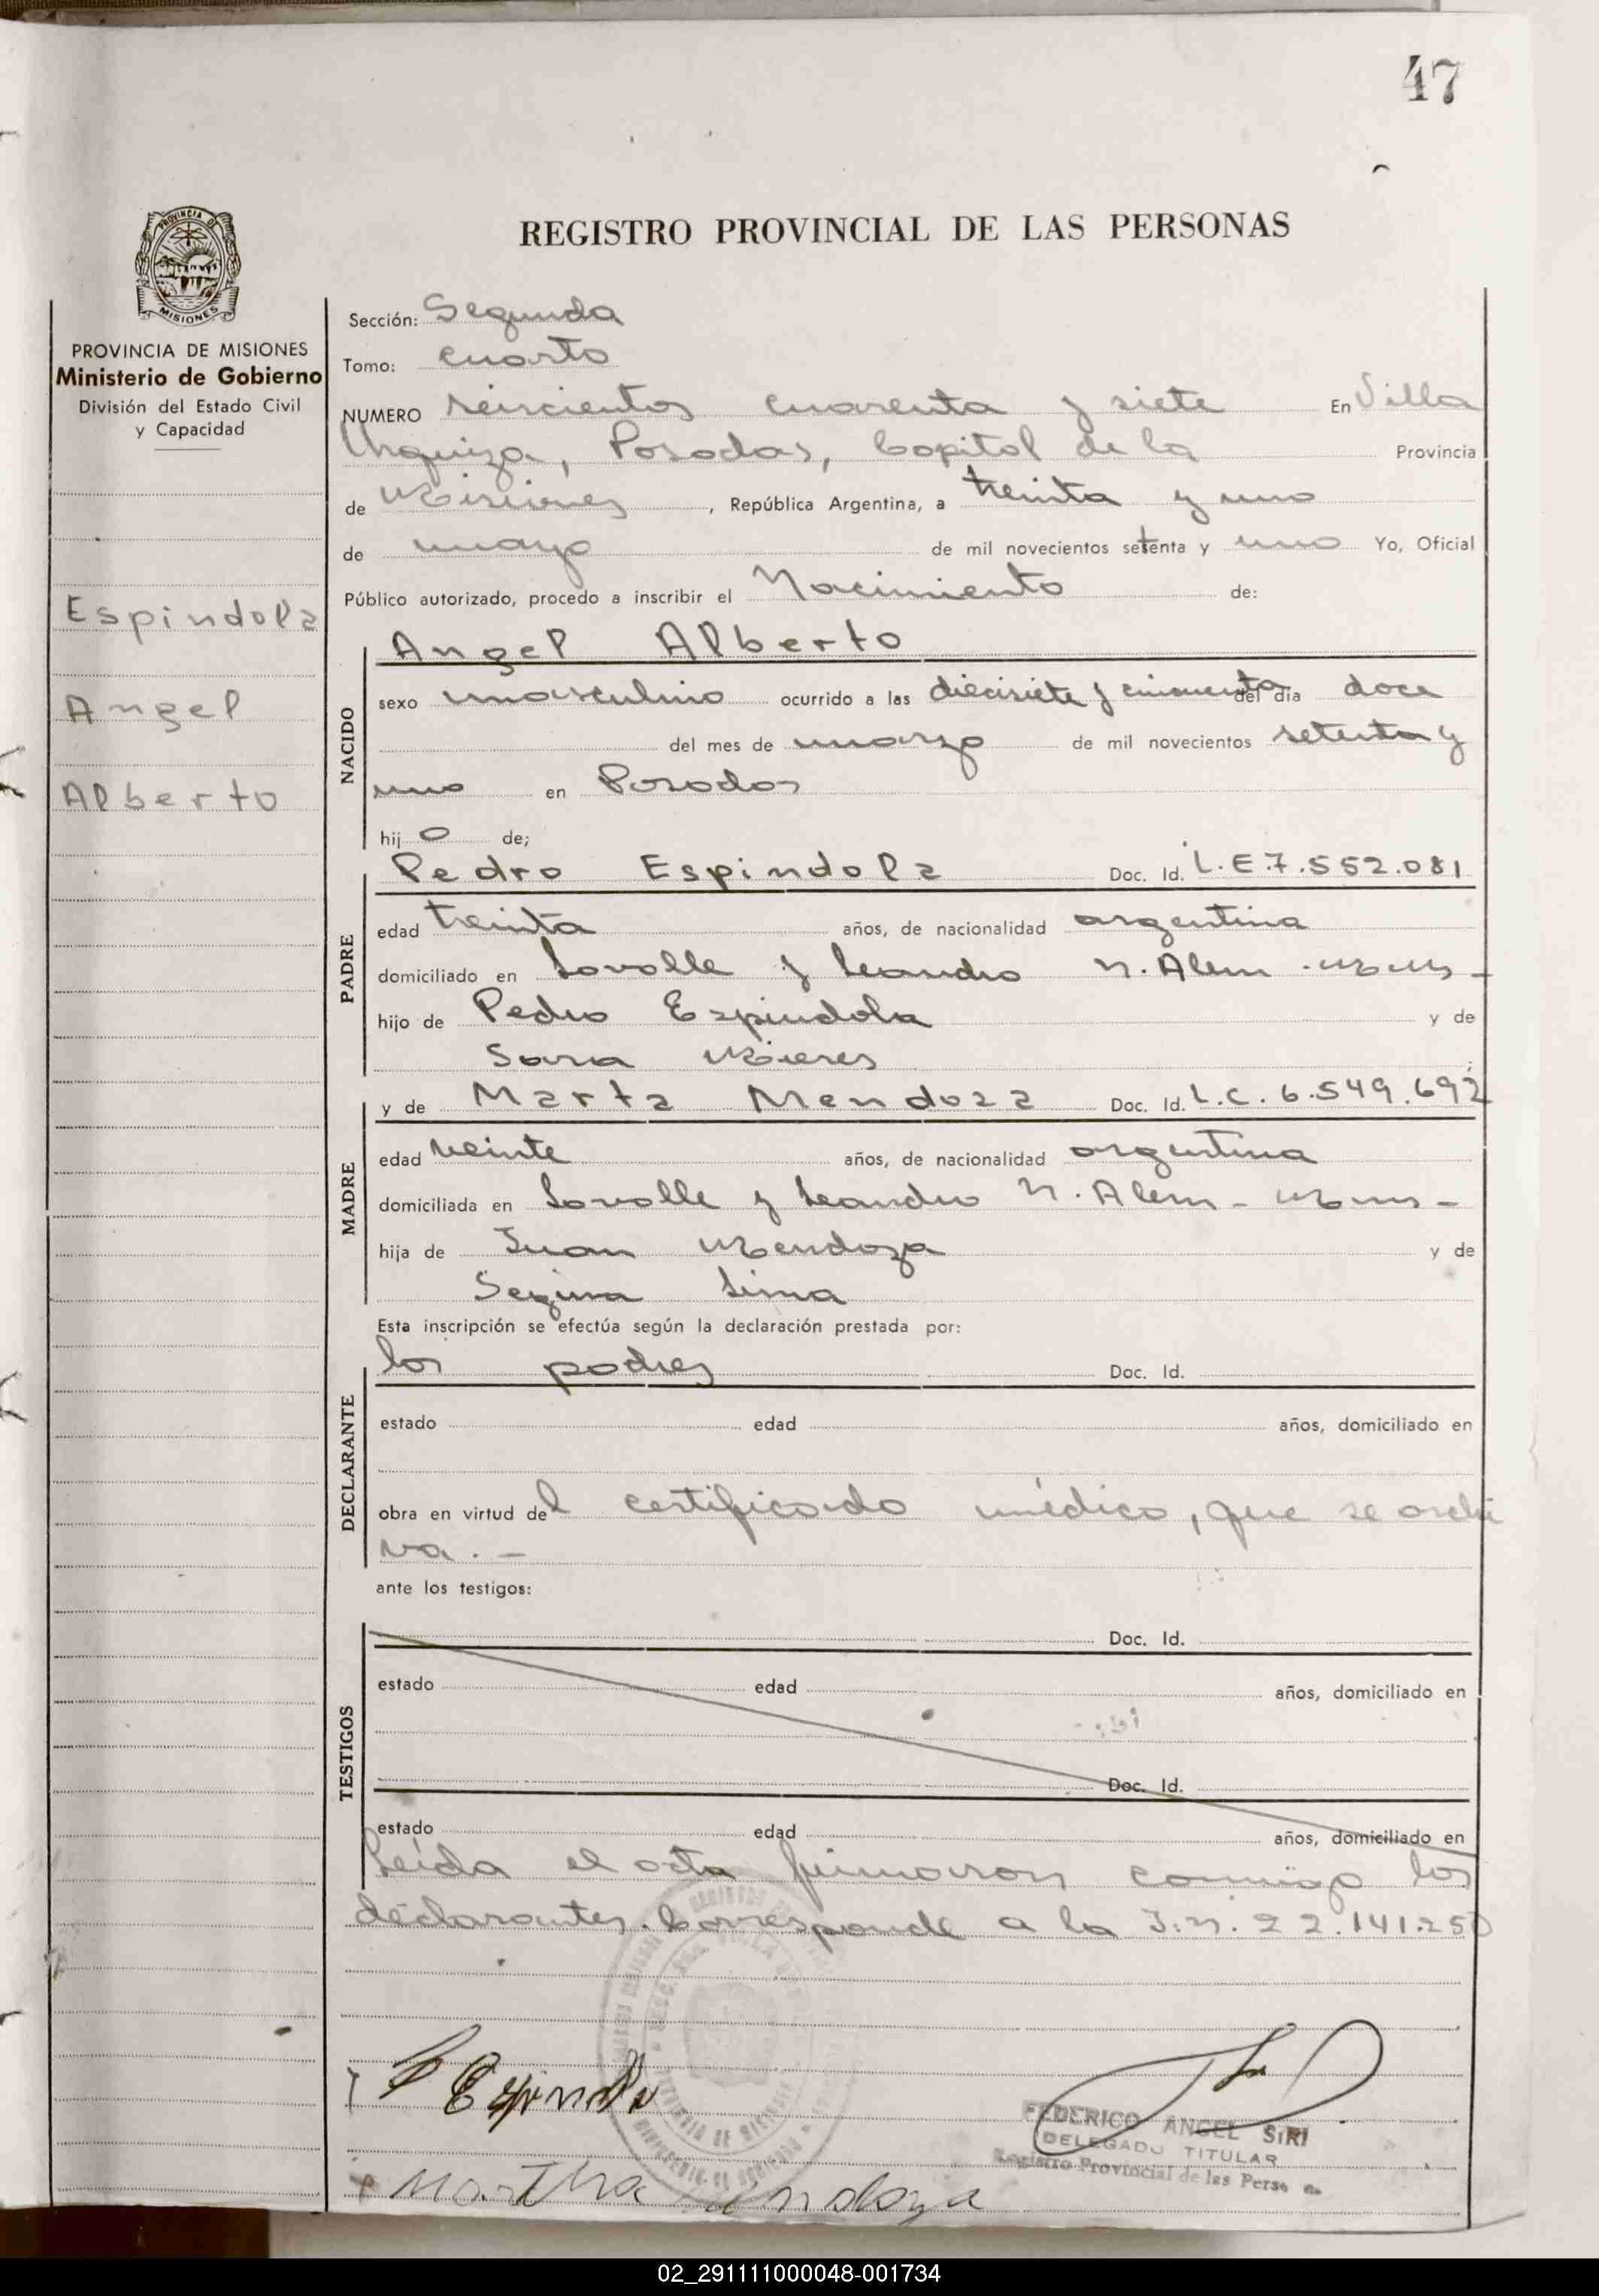 47
REGISTRO PROVINCIAL DE LAS PERSONAS
PROVINCIA DE MISIONES
PROVINCIA DE MISIONES
Ministerio de Gobierno
División del Estado Civil
y Capacidad
Espindola
Angel
Alberto
Sección: Segunda
Tomo: cuarto
NUMERO seiscientos cuarenta y siete En Villa
Urquiza, Posadas, Capital de la Provincia
de Misiones, República Argentina, a treinta y uno
de mayo de mil novecientos setenta y uno Yo, Oficial
Público autorizado, procedo a inscribir el Nacimiento de:
NACIDO
Angel Alberto
sexo masculino ocurrido a las diecisiete y cincuenta del dia doce
del mes de marzo de mil novecientos setenta y
uno en Posadas
hijo de;
PADRE
Pedro Espindola Doc. Id. L.E.7.552.081
edad treinta años, de nacionalidad argentina
domiciliado en Lavalle y Leandro N. Alem -
hijo de Pedro Espindola y de
Sara Mieres
MADRE
y de Marta Mendoza Doc. Id. L.C. 6.549.692
edad veinte años, de nacionalidad argentina
domiciliada en Lavalle y Leandro N. Alem -
hija de Juan Mendoza y de
Segina Lima
Esta inscripción se efectúa según la declaración prestada por:
DECLARANTE
los padres Doc. Id.
estado edad años, domiciliado en
obra en virtud del certificado médico, que se archi
va. -
ante los testigos:
TESTIGOS
Doc. Id.
estado edad años, domiciliado en
Doc. Id.
estado edad años, domiciliado en
Leída el acta firmaron conmigo los
declarantes. Corresponde a la I.n. 22.141.250
P Espindola
FEDERICO ANGEL SIRI
DELEGADO TITULAR
Registro Provincial de las Perso
Martha Mendoza
02_291111000048-001734